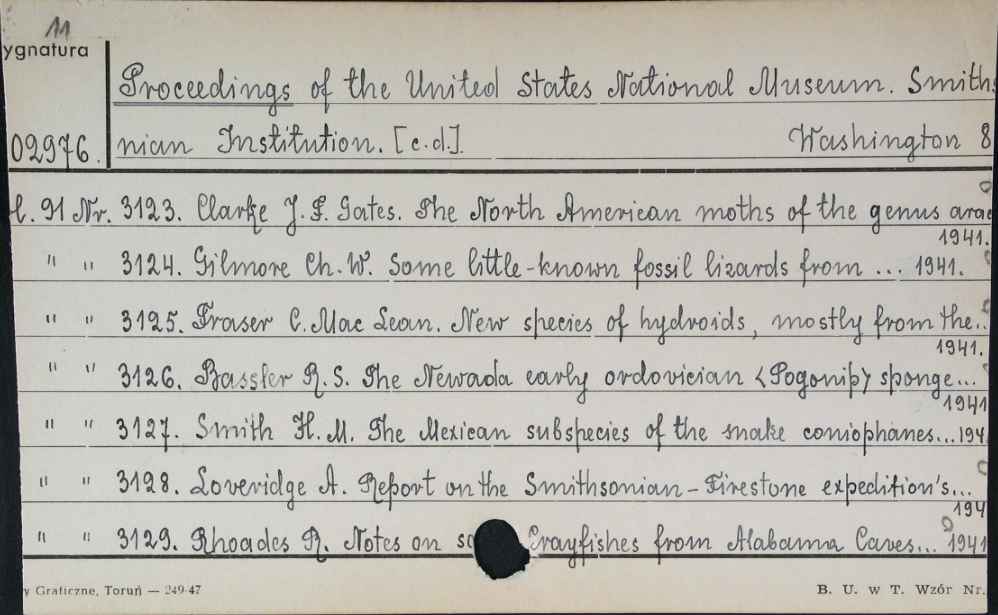 11
ygnatura
Proceedings of the United States National Museum. Smiths
02976. nian Institution. [c.d.]. Washington 8
t. 91 Nr. 3123. Clarke J. F. Gates. The North American moths of the genus arae
1941.
" " 3124. Gilmore Ch. W. Some little-known fossil lizards from ... 1941.
" " 3125. Fraser C. Mac Lean. New species of hydroids, mostly from the..
1941.
" " 3126. Bassler R. S. The Newada early ordovician <Pogonip> sponge...
1941
" " 3127. Smith H. M. The Mexican subspecies of the snake coniophanes...194
" " 3128. Loveridge A. Report on the Smithsonian - Firestone expedition's...
194
" " 3129. Rhoades R. Notes on so Crayfishes from Alabama Caves... 1941
y Graficzne, Toruń — 249-47 B. U. w T. Wzór Nr.